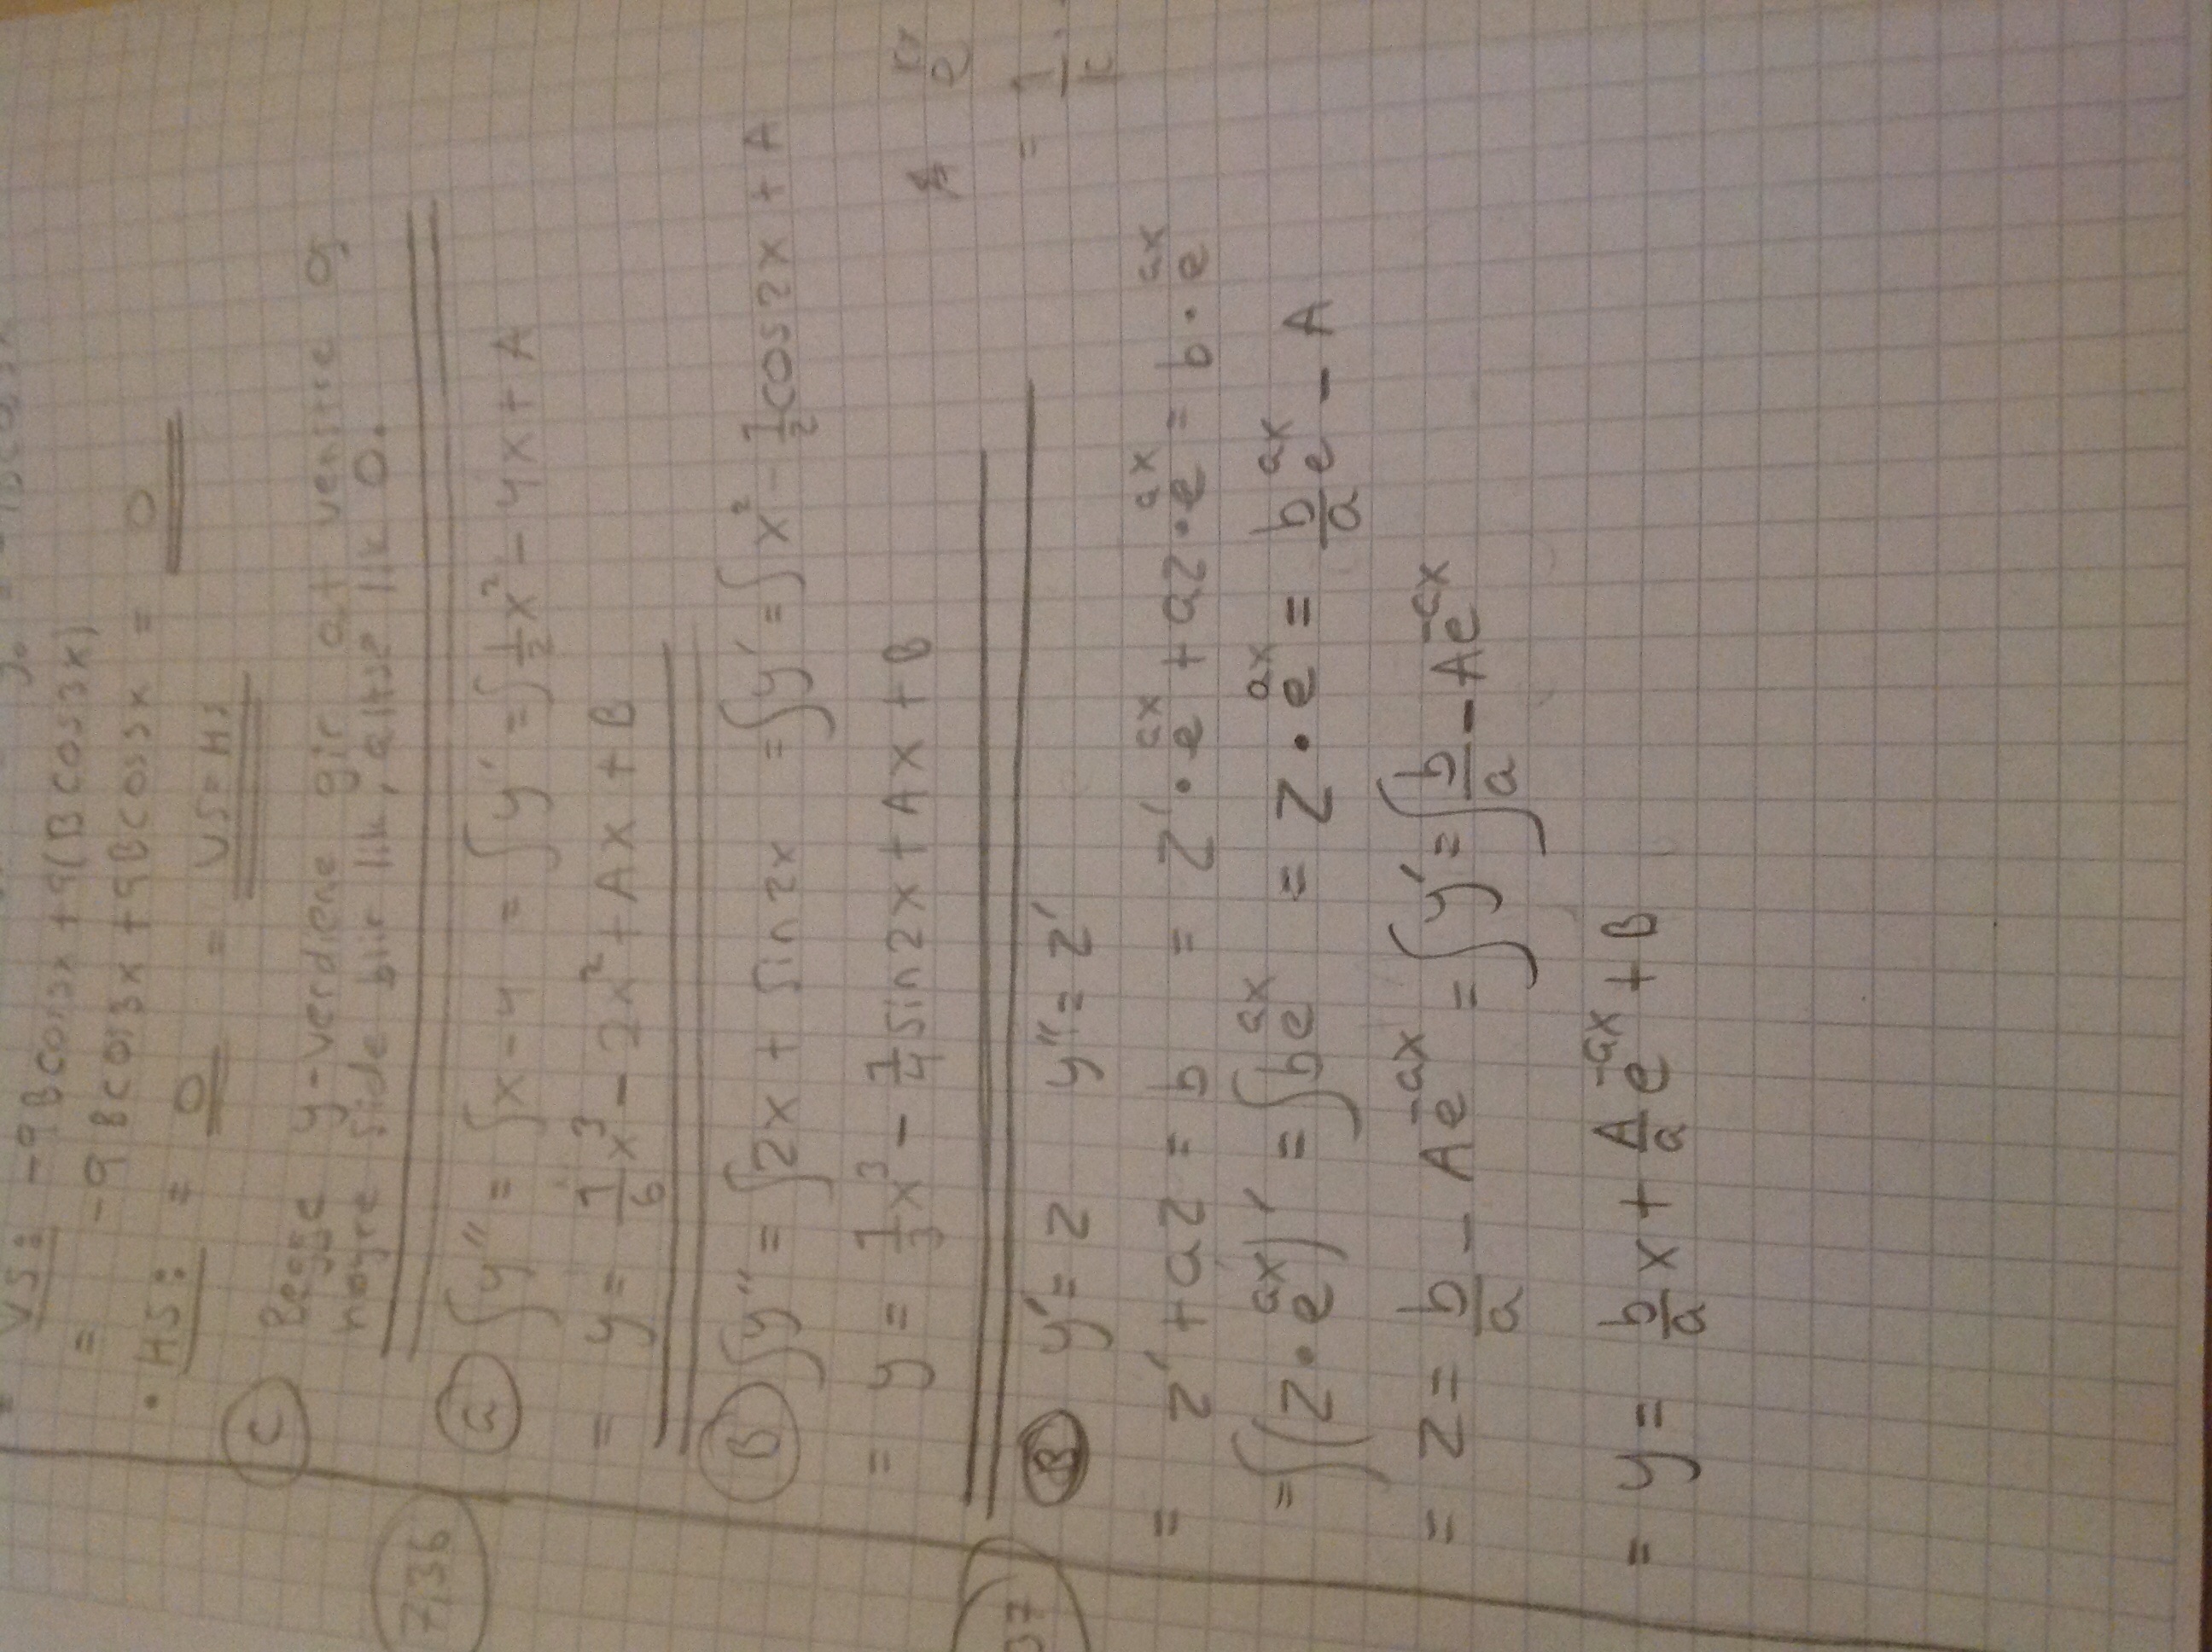 VS: -9Bcos3x + 9(Bcos3x)
= -9Bcos3x + 9Bcos3x = 0
• HS: = 0 = VS=HS
C Begge y-verdiene gir at venstre og
høyre side blir lik, altså lik 0.
7,36
a ∫y'' = ∫x-4 = ∫y' = ∫½x² - 4x + A
= y = 1/6 x³ - 2x² + Ax + B
B ∫y'' = ∫2x + sin2x = ∫y' = ∫x² - ½cos2x + A
= y = 1/3 x³ - 1/4 sin2x + Ax + B
37
y' = z y'' = z'
= z' + az = b = z'·e^ax + az·e^ax = b·e^ax
= ∫(z·e^ax)' = ∫be^ax = z·e^ax = b/a e^ax - A
= z = b/a - Ae^-ax = ∫y' = ∫b/a - Ae^-ax
= y = b/a x + A/a e^-ax + B